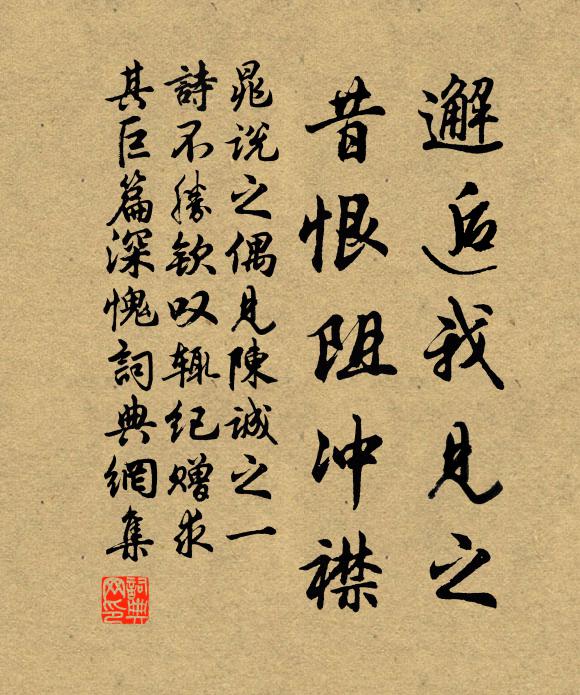 邂逅我見之
昔恨阻冲襟
晁说之偶見陳誠之一
詩不勝欽叹辄纪赠求
其巨篇深愧詞典網集
詞典网印